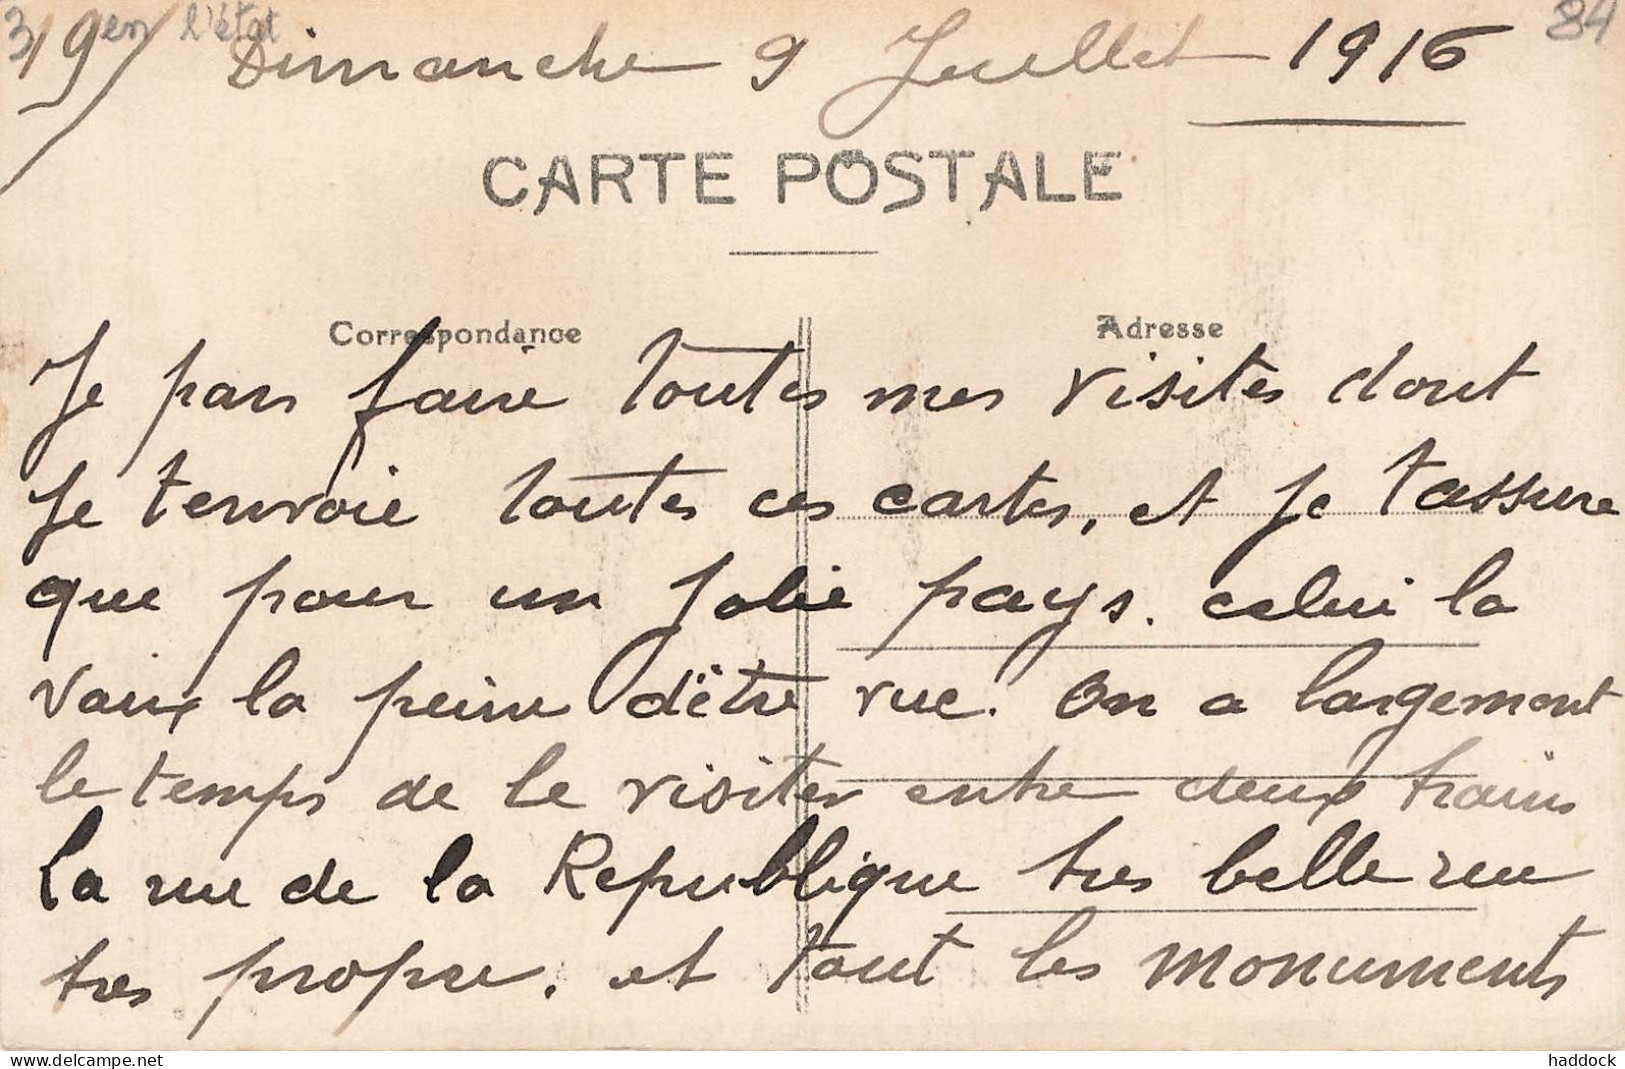 3 en l'état 84
19/ Dimanche 9 Juillet 1916
CARTE POSTALE
Correspondance
Adresse
Je pars faire toutes mes visites dont
Je tenvoie toutes ces cartes, et Je tassure
que pour un Jolie pays. celui la
vaux la peine d'être vue. On a largement
le temps de le visiter entre deux trains
La rue de la Republique tres belle rue
tres propre. et tout les monuments
www.delcampe.net
haddock